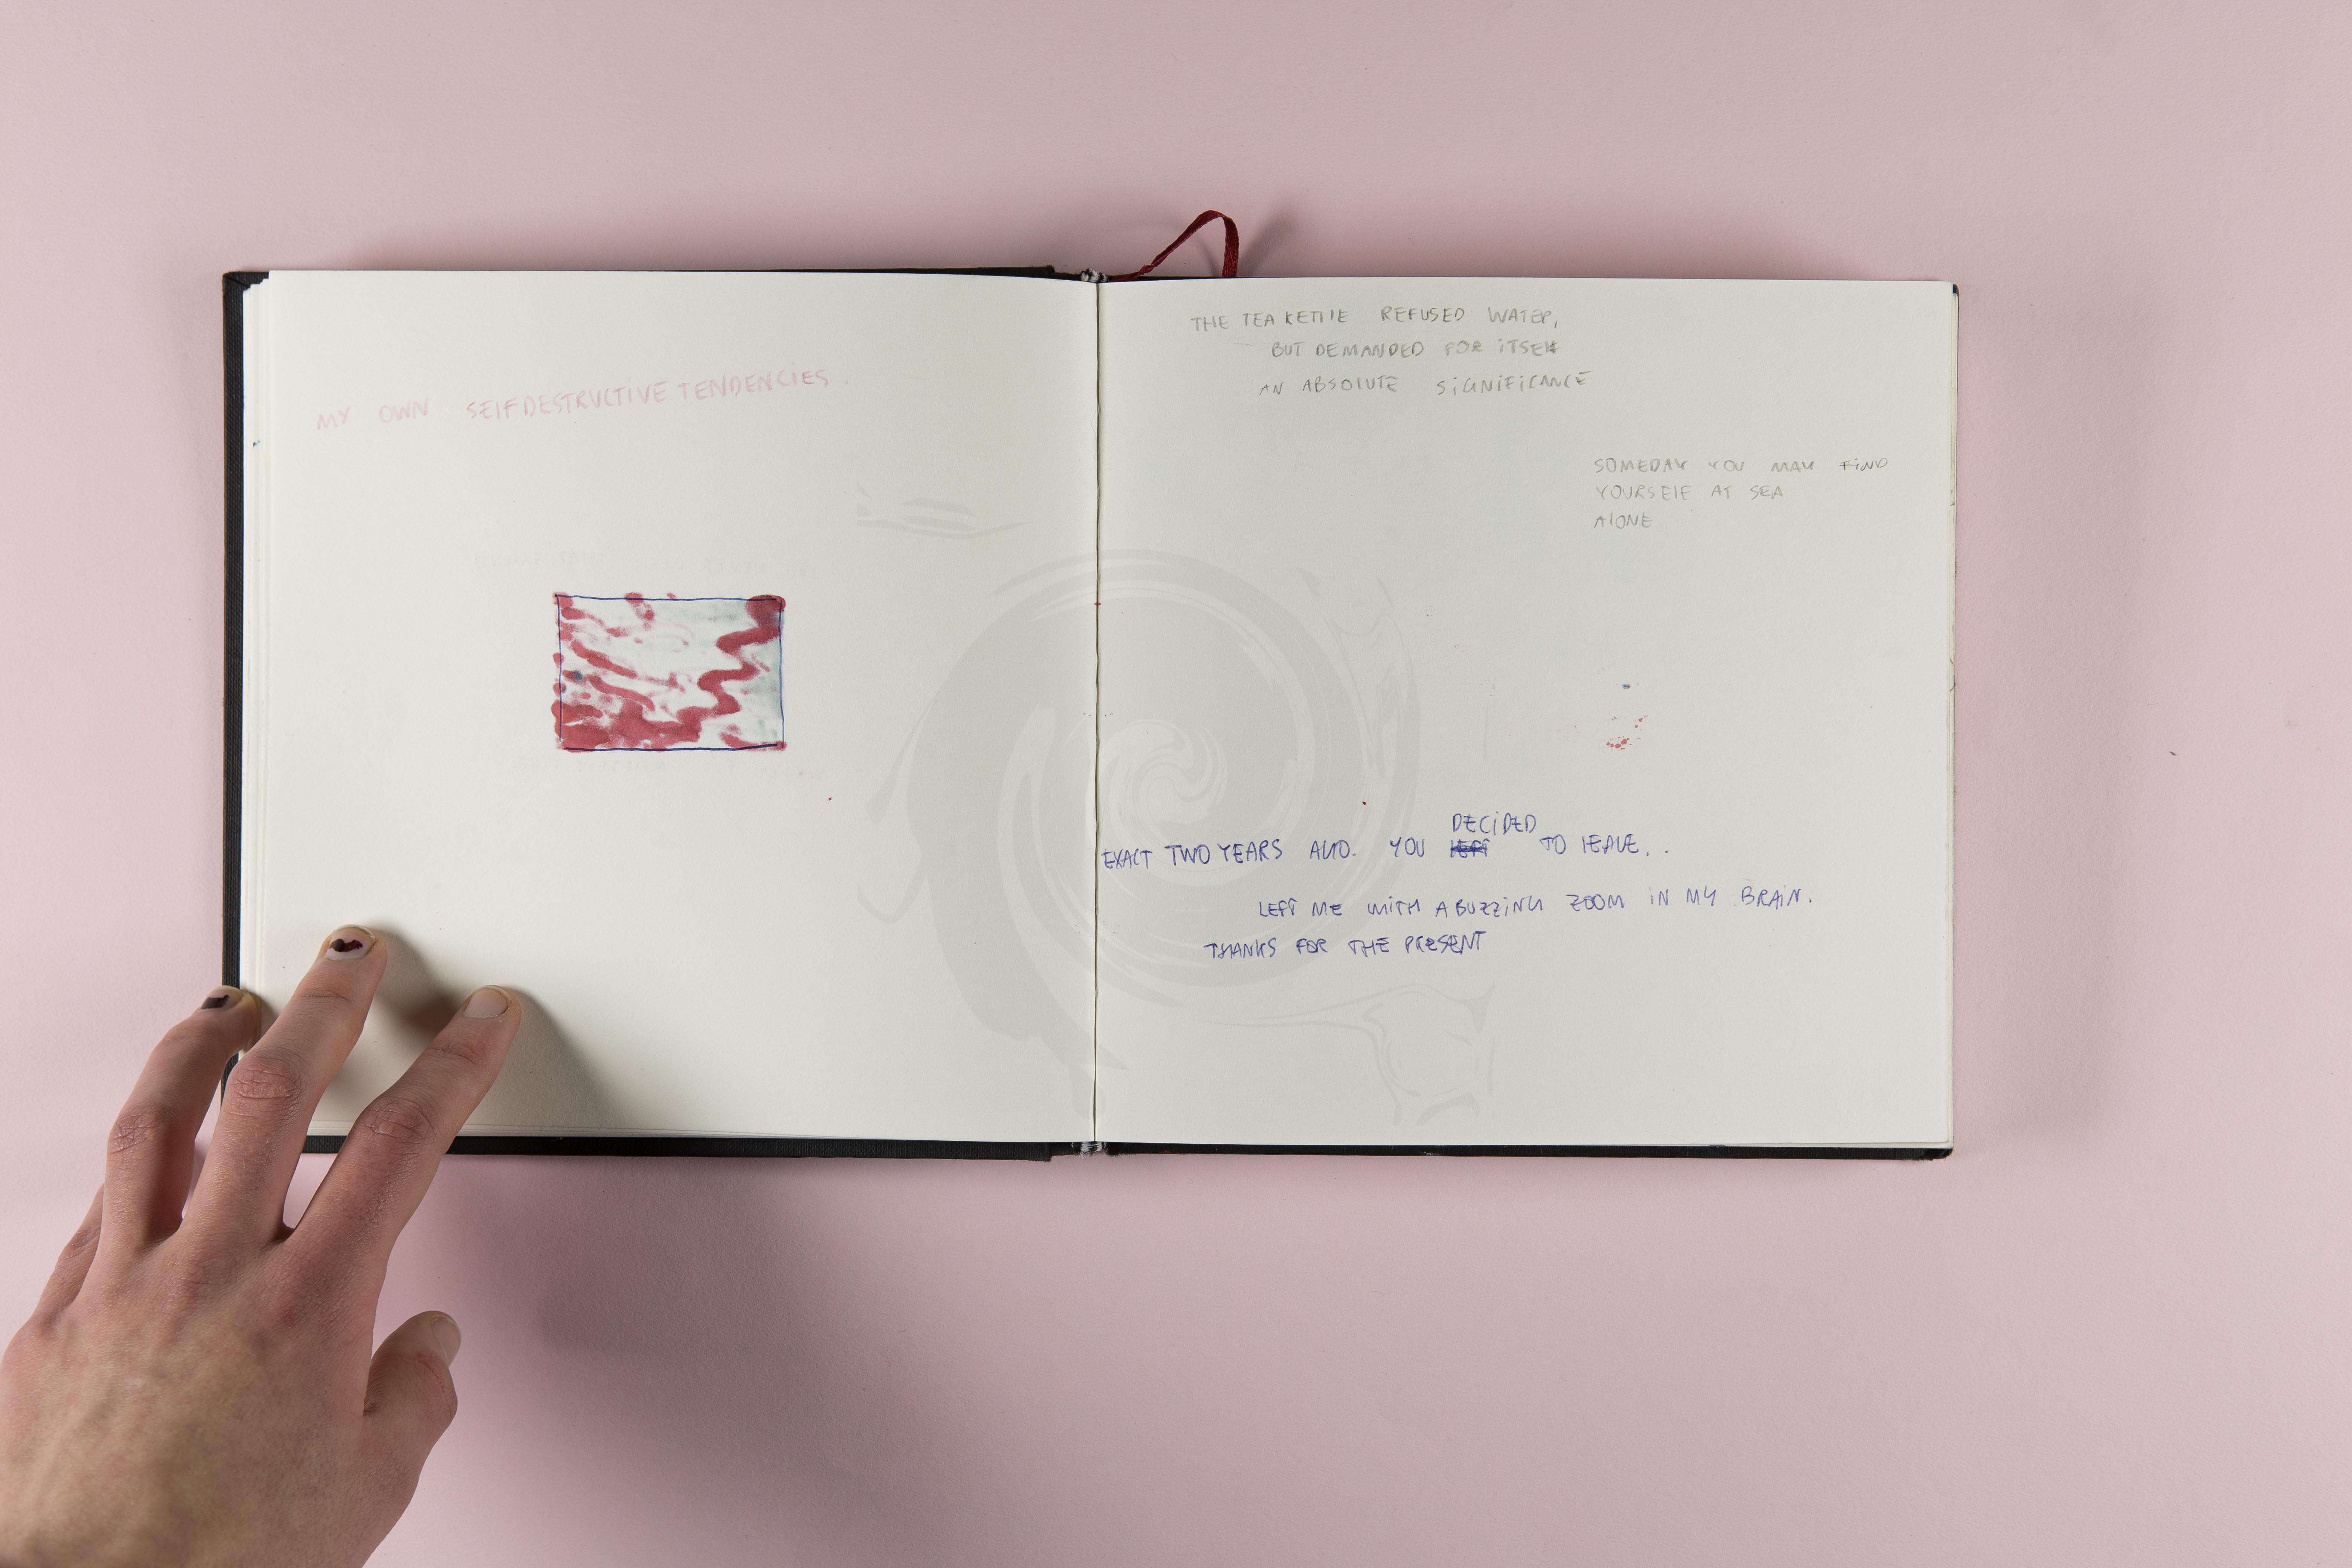 MY OWN SELFDESTRUCTIVE TENDENCIES.
THE TEA KETTLE REFUSED WATER,
BUT DEMANDED FOR ITSELF
AN ABSOLUTE SIGNIFICANCE
SOMEDAY YOU MAY FIND
YOURSELF AT SEA
ALONE
DECIDED
EXACT TWO YEARS AGO. YOU LEFT TO LEAVE..
LEFT ME WITH A BUZZING ZOOM IN MY BRAIN.
THANKS FOR THE PRESENT